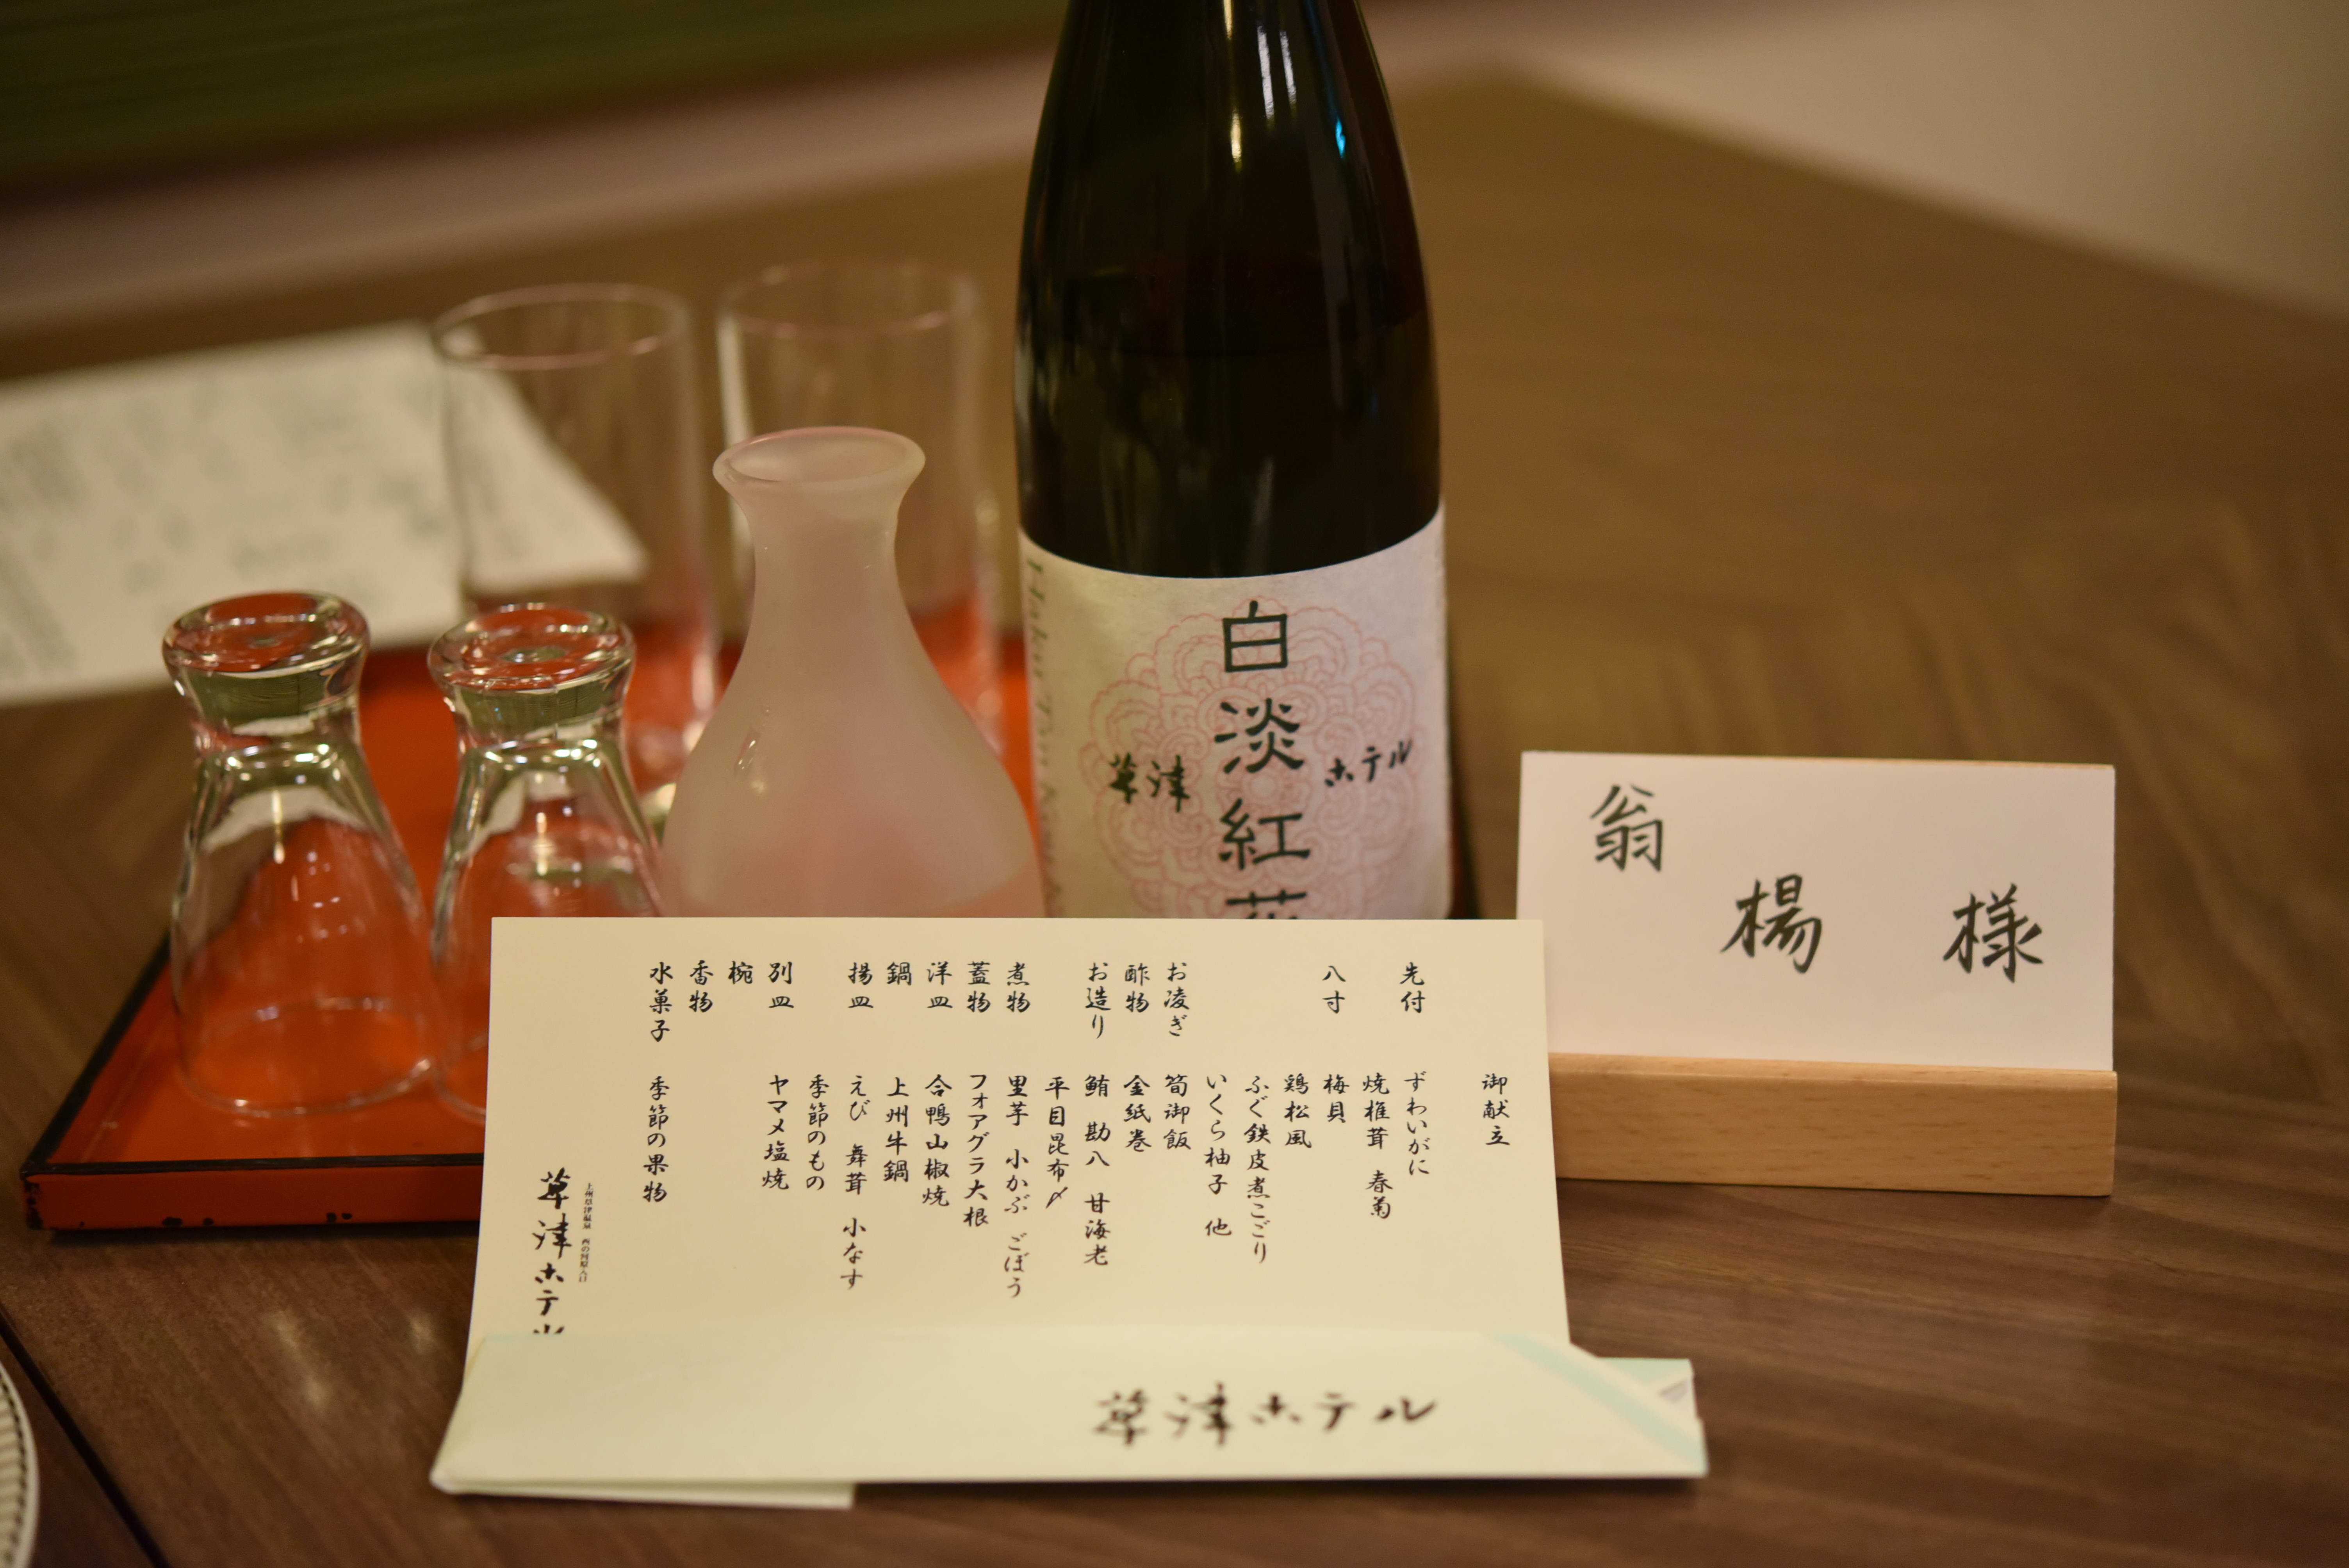 白淡紅華
草津
ホテル
翁
楊
様
御献立
先付 ずわいがに
焼椎茸 春菊
八寸 梅貝
鶏松風
ふぐ鉄皮煮こごり
いくら柚子 他
お凌ぎ 筍御飯
酢物 金紙巻
お造り 鮪 勘八 甘海老
平目昆布〆
煮物 里芋 小かぶ ごぼう
蓋物 フォアグラ大根
洋皿 合鴨山椒焼
鍋 上州牛鍋
揚皿 えび 舞茸 小なす
季節のもの
別皿 ヤマメ塩焼
椀
香物
水菓子 季節の果物
上州草津温泉 西の河原入口
草津ホテル
草津ホテル